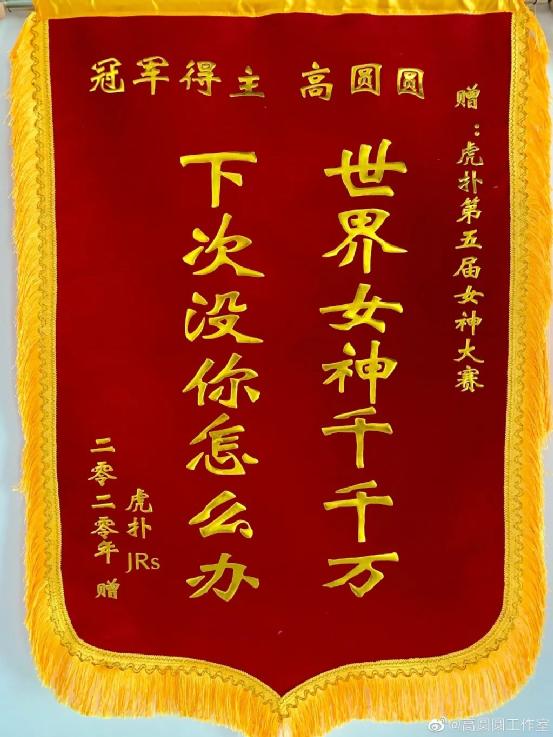 赠：虎扑第五届女神大赛
冠军得主 高圆圆
世界女神千千万
下次没你怎么办
虎扑JRs
二零二零年 赠
@高圆圆工作室